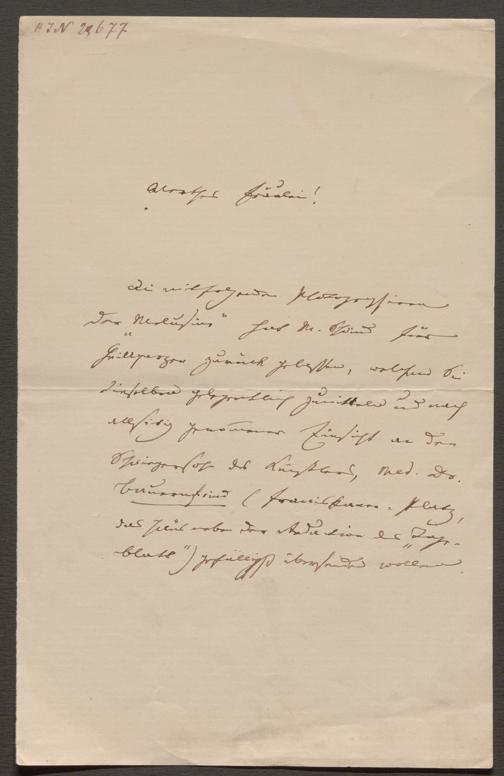 HIN 29677
Werthes Fräulein!
Die mitfolgenden Photographieen
der "Melusine" hat M. Schwind für
Grillparzer zurück gelassen, welchem Sie
dieselben gelegentlich zumitteln und nach
allseitig genommener Einsicht an den
Schwiegersohn des Künstlers, Med. Dr.
Bauernfeind (Franziskaner-Platz,
das Haus neben der Redaktion des "Tage-
blatt") gefälligst übersenden wollen.